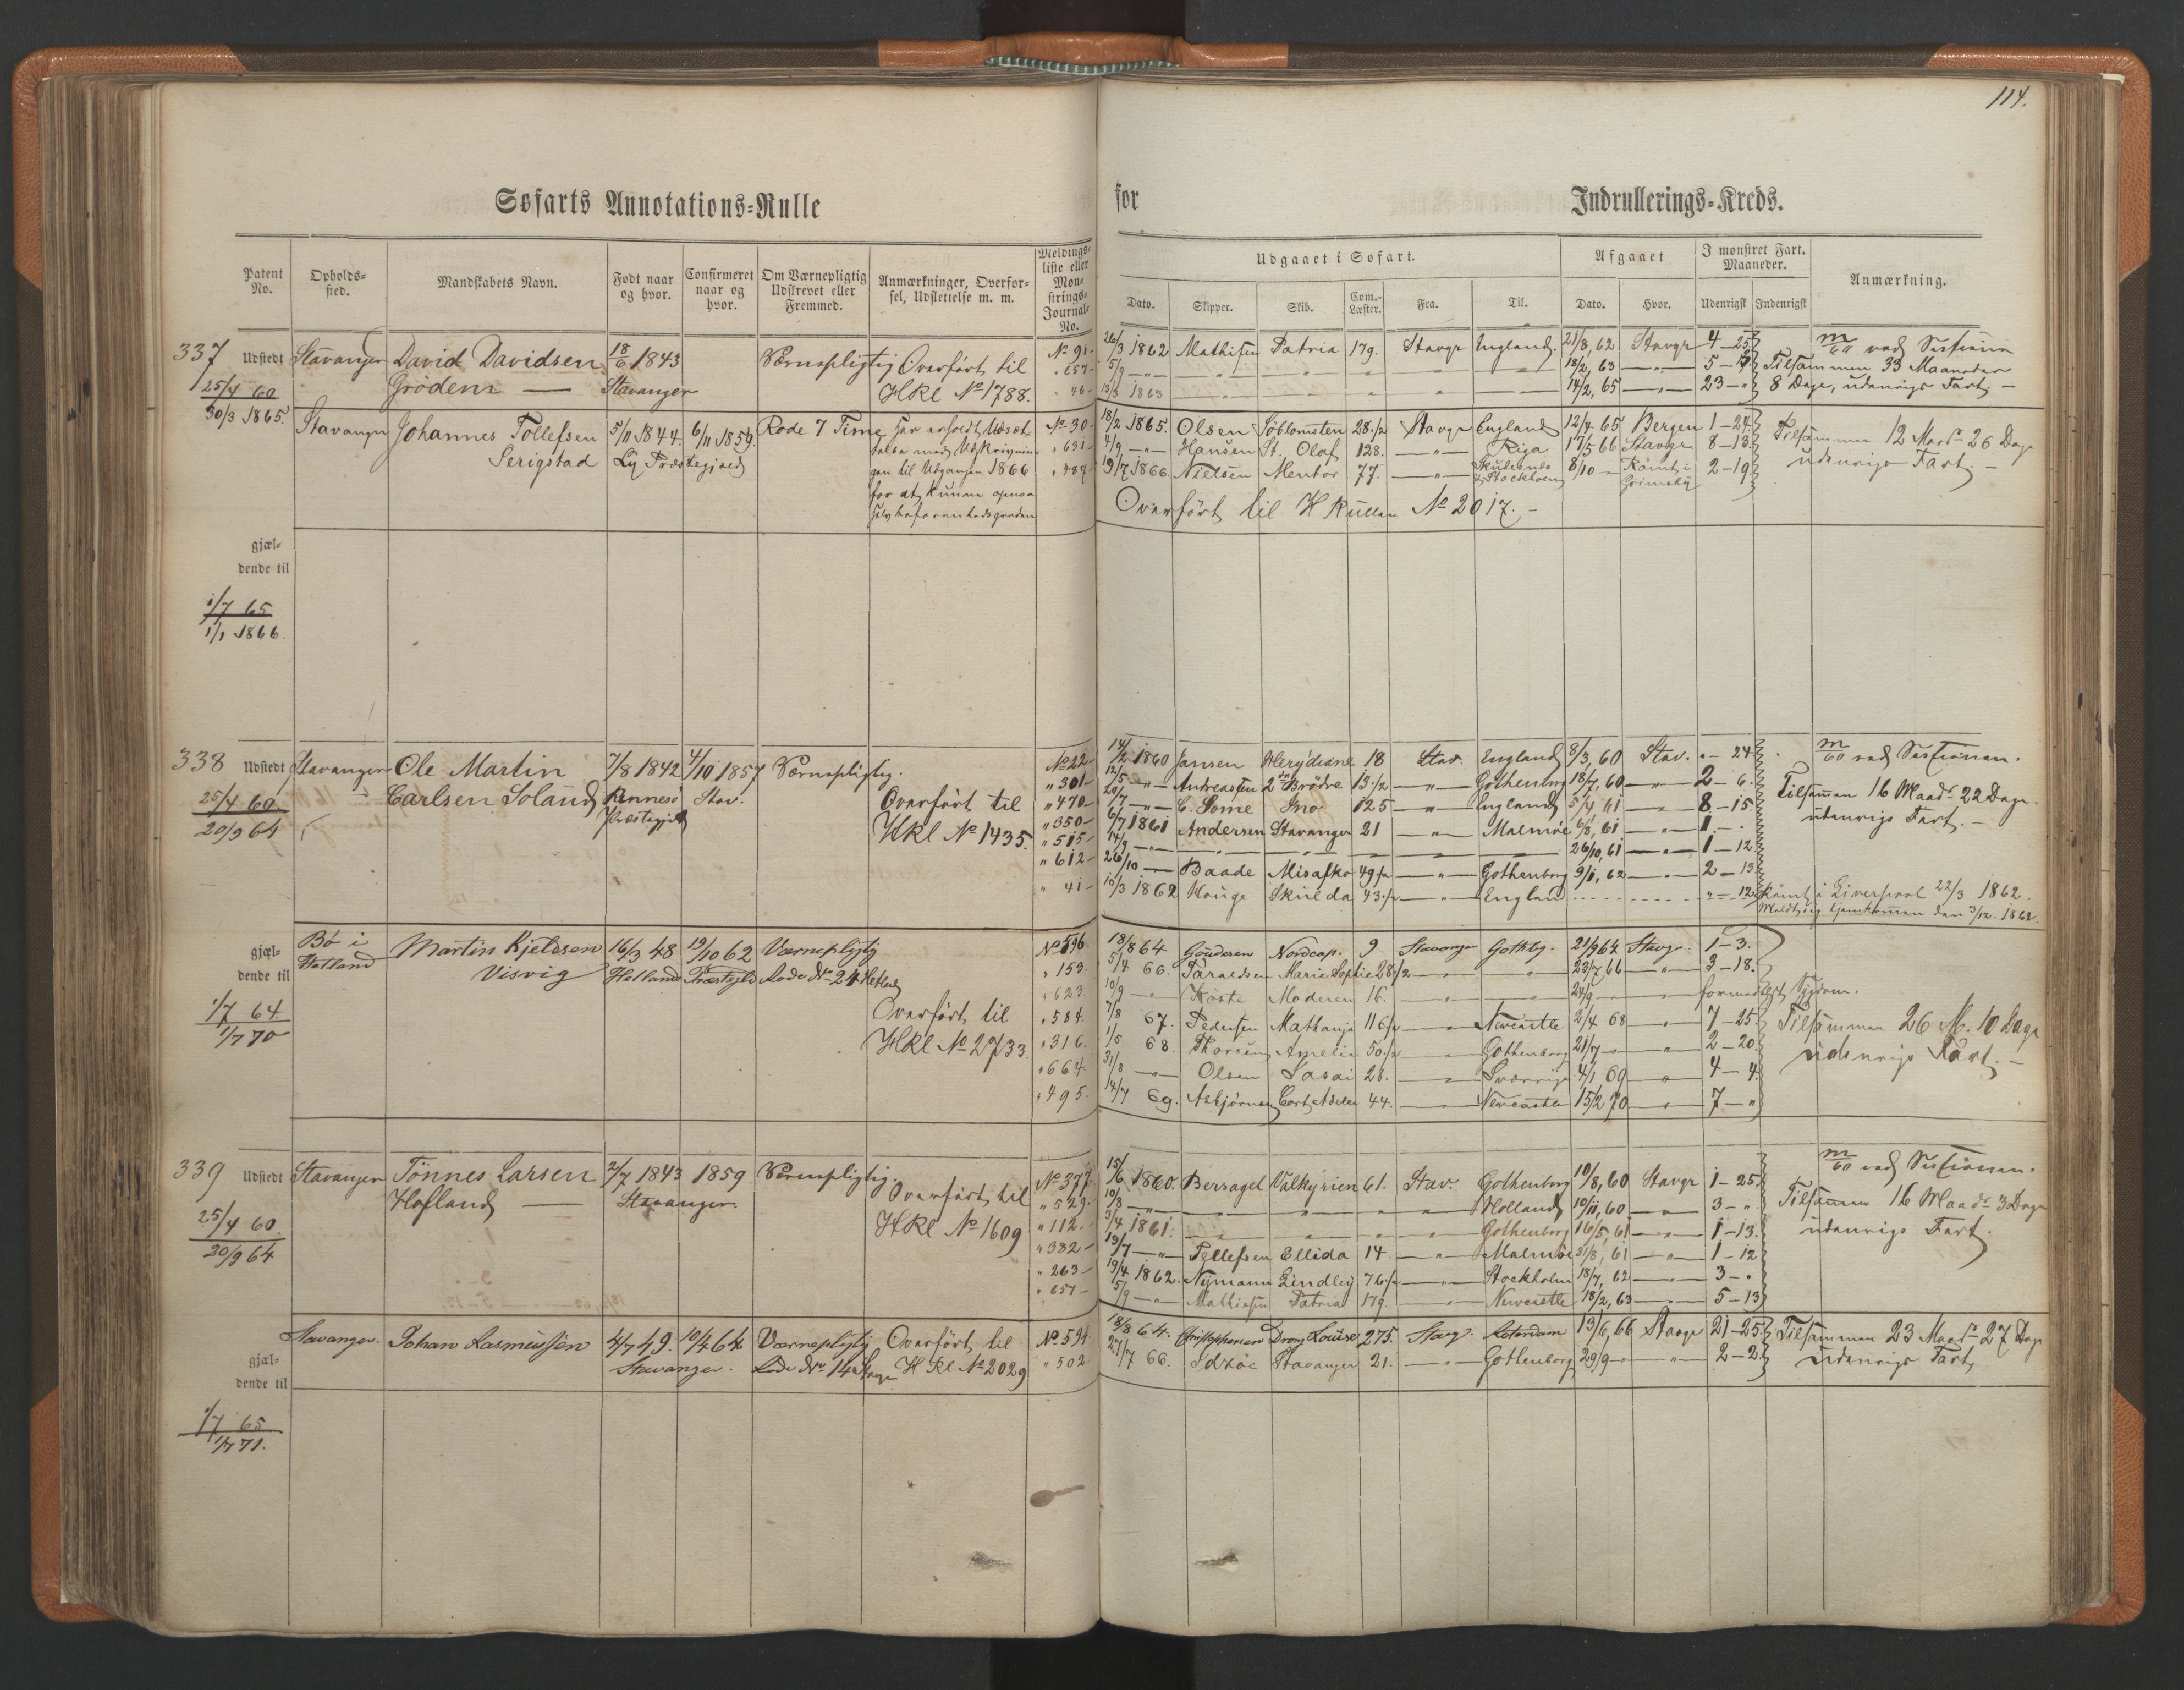 114.
Søfarts Annotations-Rulle for Indrullerings-Kreds.
Patent No. Opholds-sted. Mandskabets Navn. Født naar og hvor. Confirmeret naar og hvor. Om Værnepligtig Udskrevet eller Fremmed. Anmærkninger, Overførsel, Udslettelse m. m. Meldings-liste eller Mon-strings-Journal-No.
Udgaaet i Søfart. Afgaaet I mønstret Fart. Maaneder. Anmærkning.
Dato. Skipper. Skib. Com.-Læster. Fra. Til. Dato. Hvor. Udenrigsk Indenrigsk
337 Udstedt Stavanger David Davidsen 18/6 1843 Værnepligtig Overført til No 91
25/4 60 Grødem — Stavanger HRl No 1788. " 657
30/3 1865. " 46
26/3 1862 Mathisen Patria 179. Stavgr England 21/8, 62 Stavgr 4-25 m/60 ved Sessionen
5/9 —"— " " " " — 18/2, 63 —"— 5- Tilsammen 33 Maaneder
13/3 1863 " " " " — 14/2, 65 —"— 23-" 8 Dage, udenrigs Fart. —
Stavanger Johannes Tollefsen 5/11 1844. 6/11 1859. Rode 7 Time Har erholdt Udsæt- No 30
Serigstad Ly Præstegjæld telse med Udskrivnin- " 631
gen til Udgangen 1866 " 487
for at kunne opnaa
selvbefarenhedsgraden
18/2 1865. Olsen Söblomsten 28 1/2 Stavgr England 12/4 65 Bergen 1-24 Tilsammen 12 Maadr 26 Dage
4/9 —"— Hansen St. Olaf 128. —"— Riga 17/5 66 Stavgr 8-13 udenrigs Fart. —
19/7 1866 Nielsen Mentor 77. —"— Skudesnes & Stockholm 8/10 —"— Römt i Grimsby 2-19
Overført til H Rullen No 2017. —
gjæl-
dende til
1/7 65
1/1 1866.
338 Udstedt Stavanger Ole Martin 7/8 1842 4/10 1857 Værnepligtig. No 22
25/4 60 Carlsen Soland Rennesö Stav. Overført til " 301
20/9 64 Præstegjeld HRl No 1435. " 470
" 350
" 515
" 612
" 41
14/2 1860 Jansen 18 Stav. England 8/3, 60 Stav. "-24 m/60 ved Sessionen.
12/5 —"— Andreassen 2de Brødre 13 1/2 —"— Gothenborg 18/7, 60 —"— 2-6 Tilsammen 16 Maadr 22 Dage
20/7 —"— C. Some Ino 125 —"— England 5/4 61 —"— 8-15 udenrigs Fart. —
6/7 1861 Andersen Stavanger 21 —"— Malmöe 6/8, 61 —"— 1-"
14/9 —"— " " " " 26/10, 61 —"— 1-12
26/10 — Baade 49 1/2 —"— Gothenborg 9/1, 62 —"— 2-13
10/3 1862 Hauge Skulda 43 1/2 —"— England "-12 Römt i Liverpool 22/3 1862.
Meldt sig hjemkommen den 3/12. 1862.
gjæl-
dende til
1/7 64
1/7 70
Bö i Hetland Martin Kjeldsen 16/3 48 19/10 62 Værnepligtig No 596
Visvig Hetland Præstegjeld Rode No 24 Hetland " 159
Overført til " 623
HRl No 2733. " 584
" 316
" 664
" 495
18/8 64 Nordcap. 9 Stavanger Gothbg. 21/9 64 Stavgr. 1-3.
5/4 66. Taraldsen Marie Sophie 28 1/2 — " 23/7 66 " 3-18.
10/9 —"— Köste Moderen 16. — — 24/9 — — formedelst Sygdom.
1/8 67. Pedersen Mathanja 116 1/2 — Newcastle 2/4 68 — 7-25 Tilsammen 26 M. 10 Dage
1/5 68. Thorsen Amelie 50 1/2 " Gothenborg 21/7 —"— 2-20 udenrigs Fart. —
31/8 —"— Olsen 28. — Sverrige 4/1 69 " 4-4
14/7 69. Asbjörnsen Cort Adeler 44. — Newcastle 15/2 70 — 7-"
339 Udstedt Stavanger Tönnes Larsen 2/7 1843 1859 Værnepligtig. No 377
25/4 60. Hofland — Stavanger. Overført til " 529
20/9 64 HRl No 1609 " 112
" 382
" 263
" 657
15/6 1860. Bersagel Valkyrien 61. Stav. Gothenborg 10/8, 60 Stavgr 1-25 m/60 ved Sessionen.
10/8 —"— " " " " Holland 10/11, 60 —"— 3-" Tilsammen 16 Maadr 3 Dage
3/4 1861. " " " " Gothenborg 16/5, 61 —"— 1-13 udenrigs Fart.
19/7 —"— Tellefsen Ellida 14. —"— Malmöe 31/8, 61 —"— 1-12
19/4 1862. Nymann Lindley 76 1/2 — Stockholm 18/7, 62 —"— 3-"
5/9 —"— Mathiesen Patria 179. — Newcastle 18/2, 63 —"— 5-13
Stavanger. Johan Rasmussen 4/7 49. 10/4 64 Værnepligtig Overført til No 594
gjæl- Stavanger. Rode No 14 Stavgr H Rl No 2029 " 502
dende til
1/7 65
1/7 71.
18/8 64. Christophersen Drong Louise 275. Stavg. Roterdam 13/6, 66 Stavgr 21-25 Tilsammen 23 Maadr 27 Dage
27/7 66. Idsöe Stavanger 21. —"— Gothenborg 29/9 —"— " 2-2 udenrigs Fart